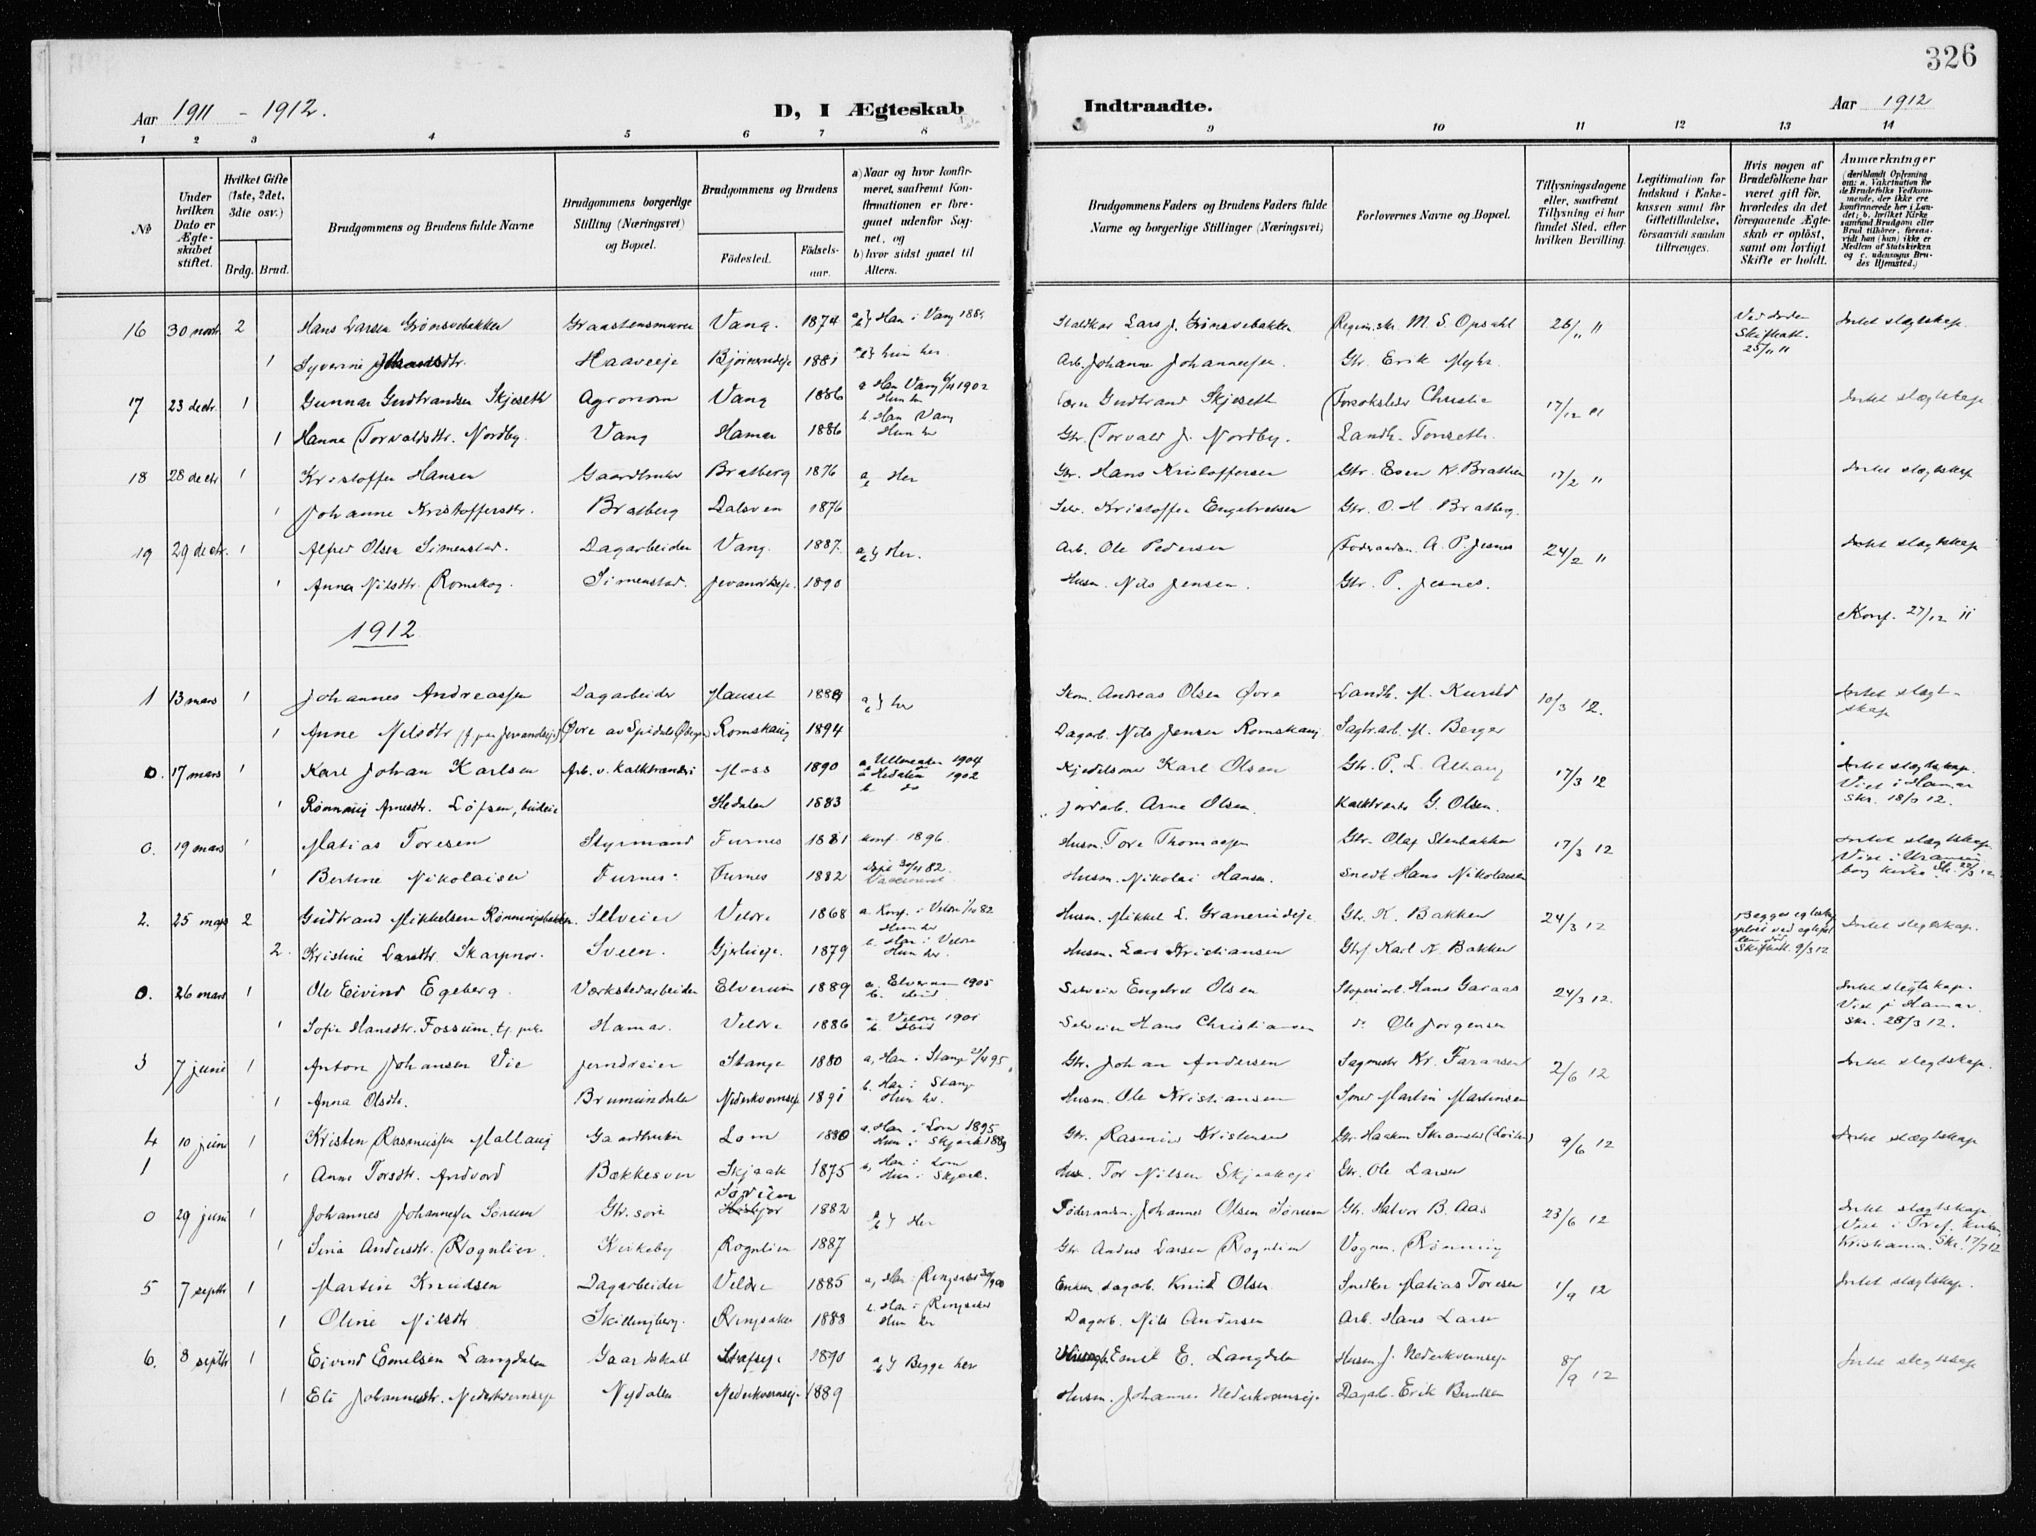 326
Aar 1911 - 1912.
D, I Ægteskab
Indtraadte.
Aar 1912
1 2 3 4 5 6 7 8
9 10 11 12 13 14
№
Under hvilken Dato er Ægteskabet stiftet.
Hvilket Gifte (1ste, 2det, 3die osv.)
Brdg. Brud.
Brudgommens og Brudens fulde Navne
Brudgommens borgerlige Stilling (Næringsvei) og Bopæl.
Brudgommens og Brudens
Fødested. Fødselsaar.
a) Naar og hvor konfirmeret, saafremt Konfirmationen er foregaaet udenfor Sognet, og
b) hvor sidst gaaet til Alters.
Brudgommens Faders og Brudens Faders fulde Navne og borgerlige Stillinger (Næringsvei)
Forlovernes Navne og Bopæl.
Tillysningsdagene eller, saafremt Tillysning ei har fundet Sted, efter hvilken Bevilling.
Legitimation for Indskud i Enkekassen samt for Giftetilladelse, forsaavidt saadan tiltrænges.
Hvis nogen af Brudefolkene har været gift før, hvorledes da det foregaaende Ægteskab er opløst, samt om lovligt Skifte er holdt.
Anmærkninger (deriblandt Oplysning om: a. Vakcination for de Brudefolks Vedkommende, der ikke ere konfirmerede her i Landet; b. hvilket Kirkesamfund Brudgom eller Brud tilhører, forsaavidt han (hun) ikke er Medlem af Statskirken og c. udensogns Brudes Hjemsted.)
16 30 novbr 2 Hans Larsen Grønsvebakken Vang. 1874 Han i Vang Lars J. Grønsvebakken M. S. Opsahl 26/11 Ved døden Intet slægtskap.
1 Syverine Haaveeje Bjørnerudeje 1881 hun her Arb. Johannesen Gbr. Erik Myhr.
17 23 decbr. 1 Gunnar Gudbrandsen Skjeseth Agronom Vang 1886 a Han Vang 1902 Gudbrand Skjeseth Christie 17/12 11 Intet slægtskap
1 Hanna Torvaldsdtr. Nordby. Vang Hamar 1886 b. Han Vang Hun her Gbr. Torvald J. Nordby. Landh. Tonseth.
18 28 decbr 1 Kristoffer Hansen Gaardbruker Bratberg 1876 Her Gbr. Hans Kristoffersen Gbr. Even N. Bratlien 17/2 11 Intet slægtskap
1 Johanne Kristoffersdtr. Bratberg Dalsven 1876 Kristoffer Engebretsen Gbr. O. H. Bratberg.
19 29 decbr. 1 Alfred Olsen Simenstad. Dagarbeider Vang. 1887. Her. Arb. Ole Pedersen A. P. Jesnes 24/2 11 Intet slægtskap
1 Anna Nilsdtr. Romskog. Simenstad. 1890 Husm. Nils Jensen. Gbr. P. Jesnes.
1912 Konf. 27/12 11
1 13 mars 1 Johannes Andreassen Dagarbeider 1889 her Andreas Olsen Øvre Landh. M. 10/3 12. Intet slægtskap
1 Anne Nilsdtr Romskaug 1894 Dagarb. Nils Jensen Romskaug Sagbr.arb. M. Berger
0. 17 mars 1 Karl Johan Karlsen Arb. v. Kalkbrænderi Moss 1890 1904 Karl Olsen Gbr. P. L. Alhaug 17/3 12 Intet slægtskap. Viet i Hamar Skr. 18/3 12.
1 Rønnaug Arnesdtr. Løfsen, budeie Hedalen 1883 Hedalen 1902 b. do Jordarb. Arne Olsen. Kalkbrænder G. Olsen.
0. 19 mars 1 Matias Toresen Styrmand Furnes 1881 konf. 1896. Husm. Tore Thomassen Gbr. Olaf Stenbakken 17/3 12 Intet slægtskap
1 Bertine Nikolaisen Furnes. Furnes 1882 Husm. Nikolai Hansen. Snedk Hans Nikolaisen
2. 25 mars 2 Gudbrand Mikkelsen Rønningsbakken. Selveier Veldre 1868 a. Konf. i Veldre 82 Hun her Husm. Mikkel L. Granerudeje Gbr. K. Bakken 24/3 12 Begges Intet slegtskap.
2. Kristine Larsdtr. Skarpnor. Sveen. Gjerlueje. 1879 b. Han i Veldre Hun her. Husm. Lars Kristiansen Gbr. Karl N. Bakken Skifteatt. 9/3 12
0. 26 mars 1 Ole Eivind Egeberg. Værkstedarbeider Elverum 1889 a. Elverum 1905 b. ibid Selveier Engebret Olsen Støperiarb. Hans Garaas 24/3 12. Intet slegtskap. Viet i Hamar. Skr. 28/3 12.
1 Sofie Hansdtr. Fossum, tj. pike Hamar. Veldre 1886 a. Veldre 1901 b. ibid Selveier Hans Christiansen d. Ole Jørgensen
3 7 juni 1 Anton Johansen Vie Jerndreier Stange 1880 a, Han i Stange 95. Gbr. Johan Andersen Sagmestr Kr. Faraasen 2/6 12 Intet slegtskap.
1 Anna Olsdtr. Brumunddalen Nederkvernseje 1891 b. Han i Stange Hun her. Husm. Ole Kristiansen Martin Martinsen
4 10 juni 1 Kristen Rasmussen Mollaug Gaardbruker Lom 1880 a. Han i Lom 1895 Hun i Skjaak 1889 Gbr. Rasmus Kristensen Gbr. Haakon 9/6 12 Intet slægtskap
1 1 Anne Torsdtr. Andvord Bækkesven Skjaak 1875 b, Han i Lom Hun i Skjaak. Tor Nilsen Skjaakeje Gbr. Ole Larsen
0 29 juni 1 Johannes Johannesen Sørum Gbr. søn Sørum 1882 Her Føderaadsm. Johannes Olsen Sørum Gbr. Halvor B. Aas 23/6 12 Intet slægtskap. Viet i Tref. kirken Kristiania. Skr. 17/7 12
1 Sina Andersdtr. Rognlien. Kirkeby Rognlien 1887 Gbr. Anders Larsen Rognlien Vognm. Rønning
5 7 septbr 1 Martin Knudsen Dagarbeider Veldre 1885 a, Han i Ringsaker 1900 Enkem dagarb. Knut Olsen Snedker Matias Toresen 1/9 12 Intet slægtskap.
1 Oline Nilsdtr. Skillingberg. Ringsaker 1888 b. Han i Ringsaker Hun her Dagarb. Nils Andersen Arb. Hans Larsen
6. 8 septbr 1 Eivind Emilsen Langdalen Gaardskall 1890 Begge her Emil E. Langdalen Husm J. Nederkvernseje 8/9 12 Intet slegtskap
1 Eli Johannesdtr. Nederkvernseje Nydalen Nederkvernseje 1889 Husm. Johannes Nederkvernseje Dagarb. Erik Berntsen